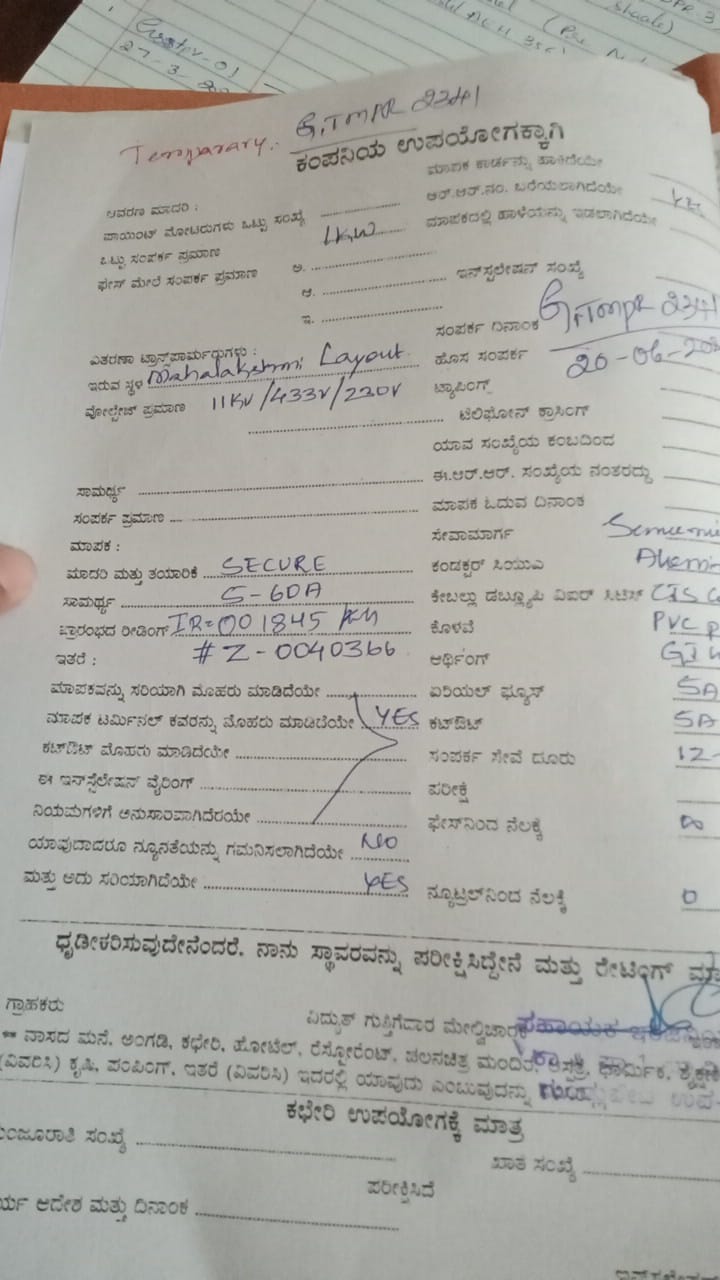 27-3-20
G.TMPR 2341
Temparary.
ಕಂಪನಿಯ ಉಪಯೋಗಕ್ಕಾಗಿ
ಮಾಪಕ ಕಾರ್ಡನ್ನು ಹಾಕಿದೆಯೇ
ಆವರಣ ಮಾದರಿ :
ಆರ್.ಆರ್.ನಂ. ಬರೆಯಲಾಗಿದೆಯೇ
ಪಾಯಿಂಟ್ ಮೋಟರುಗಳು ಒಟ್ಟು ಸಂಖ್ಯೆ
ಮಾಪಕದಲ್ಲಿ ಹಾಳೆಯನ್ನು ಇಡಲಾಗಿದೆಯೇ
ಒಟ್ಟು ಸಂಪರ್ಕ ಪ್ರಮಾಣ 1KW
ಫೇಸ್ ಮೇಲೆ ಸಂಪರ್ಕ ಪ್ರಮಾಣ ಅ.
ಆ. ಇನ್‌ಸ್ಟಲೇಷನ್ ಸಂಖ್ಯೆ G.TMPR 2341
ಇ.
ಸಂಪರ್ಕ ದಿನಾಂಕ 20-06-20
ವಿತರಣಾ ಟ್ರಾನ್ಸ್‌ಪಾರ್ಮರುಗಳು :
ಇರುವ ಸ್ಥಳ Mahalakshmi Layout ಹೊಸ ಸಂಪರ್ಕ
ವೋಲ್ಟೇಜ್ ಪ್ರಮಾಣ 11KV/433V/230V ಟ್ಯಾಪಿಂಗ್
ಟೆಲಿಫೋನ್ ಕ್ರಾಸಿಂಗ್
ಯಾವ ಸಂಖ್ಯೆಯ ಕಂಬದಿಂದ
ಸಾಮರ್ಥ್ಯ ಈ.ಆರ್.ಆರ್. ಸಂಖ್ಯೆಯ ನಂತರದ್ದು
ಸಂಪರ್ಕ ಪ್ರಮಾಣ ಮಾಪಕ ಓದುವ ದಿನಾಂಕ
ಮಾಪಕ : ಸೇವಾಮಾರ್ಗ
ಮಾದರಿ ಮತ್ತು ತಯಾರಿಕೆ SECURE ಕಂಡಕ್ಟರ್ ಸಿಯುಎ
ಸಾಮರ್ಥ್ಯ 5-60A ಕೇಬಲ್ಲು ಡಬ್ಲ್ಯೂಪಿ ವಿಐರ್ ಸಿಟಿಸ್
ಪ್ರಾರಂಭದ ರೀಡಿಂಗ್ IR=001845 KH ಕೊಳವೆ PVC P
ಇತರೆ : #Z-0040366 ಅರ್ಥಿಂಗ್ GI
ಮಾಪಕವನ್ನು ಸರಿಯಾಗಿ ಮೊಹರು ಮಾಡಿದೆಯೇ ಏರಿಯಲ್ ಫ್ಯೂಸ್ 5A
ಮಾಪಕ ಟರ್ಮಿನಲ್ ಕವರನ್ನು ಮೊಹರು ಮಾಡಿದೆಯೇ YES ಕಟ್‌ಔಟ್ 5A
ಕಟ್‌ಔಟ್ ಮೊಹರು ಮಾಡಿದೆಯೇ ಸಂಪರ್ಕ ಸೇವೆ ದೂರು 12-
ಈ ಇನ್‌ಸ್ಟೆಲೇಷನ್ ವೈರಿಂಗ್ ಪರೀಕ್ಷೆ
ನಿಯಮಗಳಿಗೆ ಅನುಸಾರವಾಗಿದೆರಯೇ ಫೇಸ್‌ನಿಂದ ನೆಲಕ್ಕೆ ∞
ಯಾವುದಾದರೂ ನ್ಯೂನತೆಯನ್ನು ಗಮನಿಸಲಾಗಿದೆಯೇ NO
ಮತ್ತು ಅದು ಸರಿಯಾಗಿದೆಯೇ YES ನ್ಯೂಟ್ರಲ್‌ನಿಂದ ನೆಲಕ್ಕೆ 0
ಧೃಡೀಕರಿಸುವುದೇನೆಂದರೆ, ನಾನು ಸ್ಥಾವರವನ್ನು ಪರೀಕ್ಷಿಸಿದ್ದೇನೆ ಮತ್ತು ರೇಟಿಂಗ್ ಮಾ
ಗ್ರಾಹಕರು ವಿದ್ಯುತ್ ಗುತ್ತಿಗೆದಾರ ಮೇಲ್ವಿಚಾರಕ ಸಹಾಯಕ
** ವಾಸದ ಮನೆ, ಅಂಗಡಿ, ಕಛೇರಿ, ಹೋಟೆಲ್, ರೆಸ್ಟೋರೆಂಟ್, ಚಲನಚಿತ್ರ ಮಂದಿರ, ಆಸ್ಪತ್ರೆ, ಧಾರ್ಮಿಕ, ಶೈಕ್ಷಣಿ
(ವಿವರಿಸಿ) ಕೃಷಿ, ಪಂಪಿಂಗ್, ಇತರೆ (ವಿವರಿಸಿ) ಇದರಲ್ಲಿ ಯಾವುದು ಎಂಬುವುದನ್ನು
ಕಛೇರಿ ಉಪಯೋಗಕ್ಕೆ ಮಾತ್ರ
ಮಂಜೂರಾತಿ ಸಂಖ್ಯೆ ಖಾತ ಸಂಖ್ಯೆ
ಪರೀಕ್ಷಿಸಿದೆ
ರ್ಯ ಆದೇಶ ಮತ್ತು ದಿನಾಂಕ